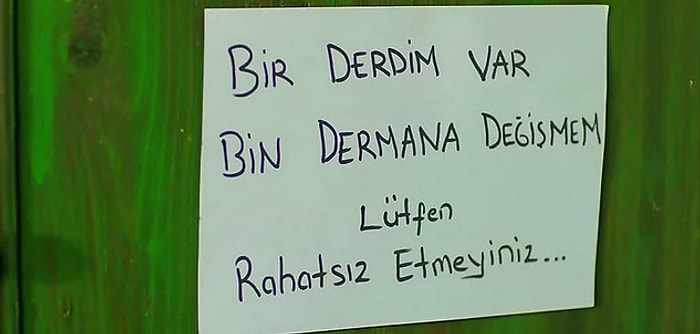 BİR DERDİM VAR
BİN DERMANA DEĞİŞMEM
Lütfen
Rahatsız Etmeyiniz...